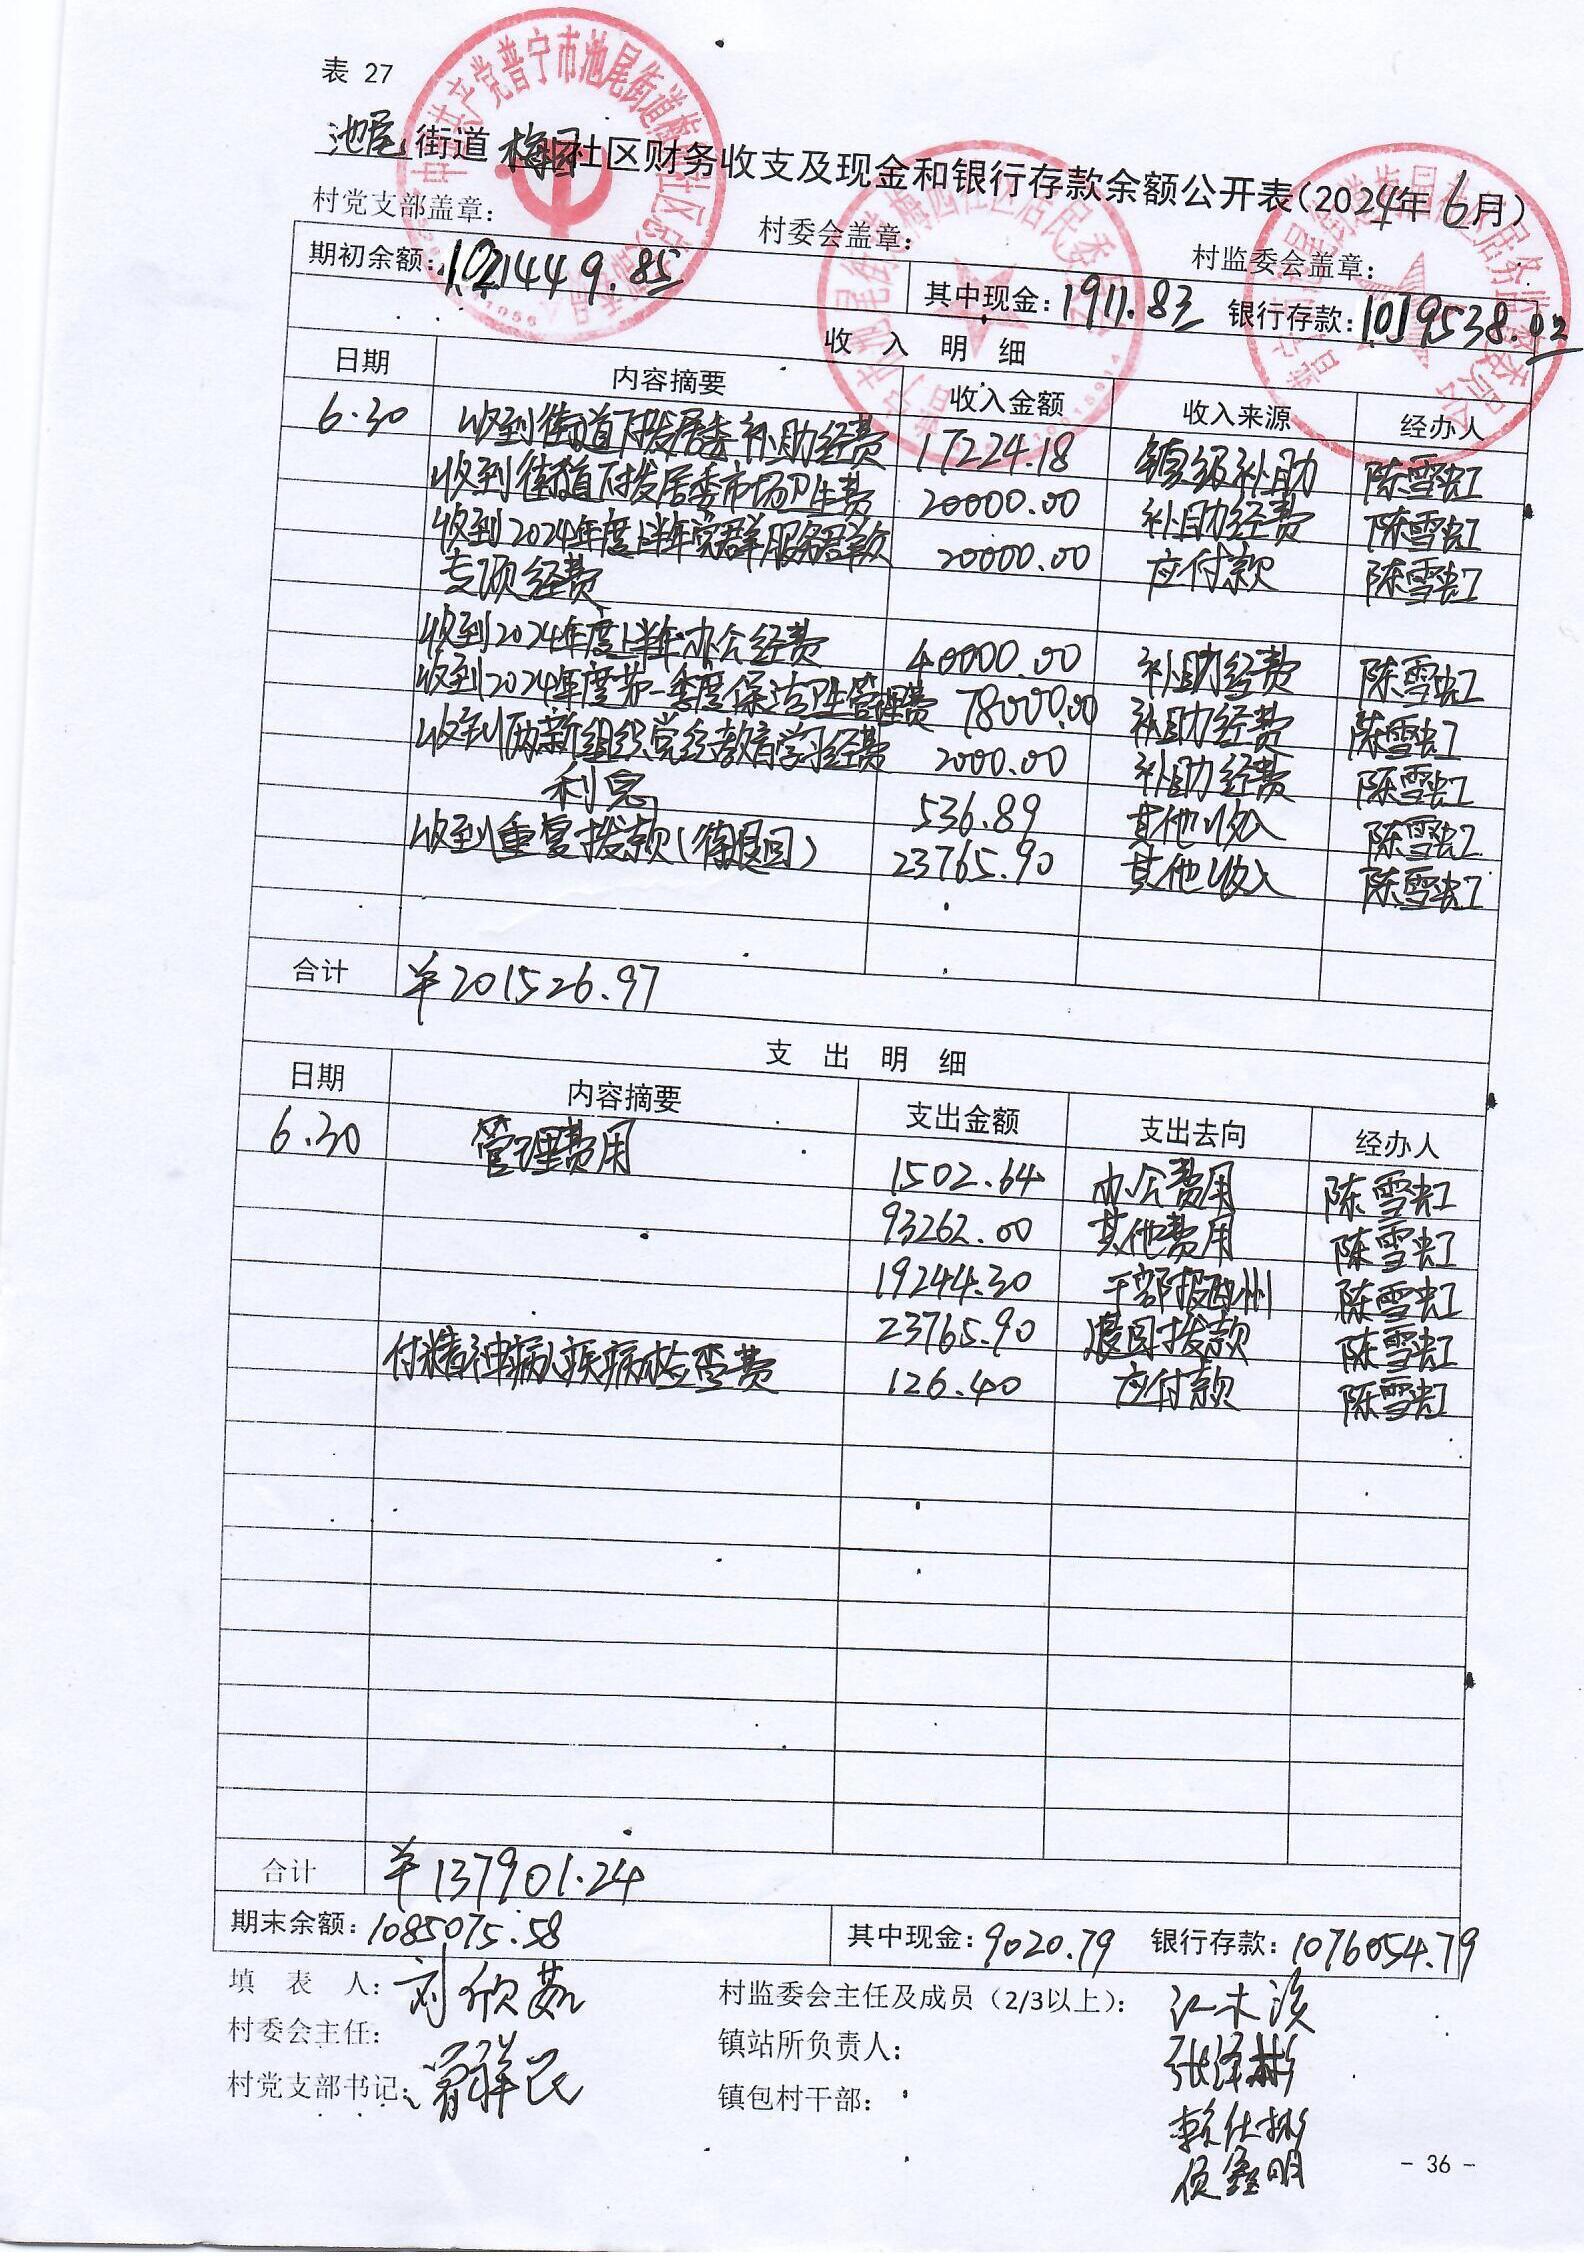 表 27
池尾街道梅园社区财务收支及现金和银行存款余额公开表(2024年6月)
村党支部盖章: 村委会盖章: 村监委会盖章:
期初余额:1021449.85 其中现金:1911.83 银行存款:1019538.02
收 入 明 细
日期 内容摘要 收入金额 收入来源 经办人
6.30 收到街道下拨居委补助经费 17224.18 镇级补助 陈雪虹
收到街道下拨居委市场卫生费 20000.00 补助经费 陈雪虹
收到2024年度上半年党群服务群众 20000.00 应付款 陈雪虹
专项经费
收到2024年度上半年办公经费 40000.00 补助经费 陈雪虹
收到2024年度第一季度保洁卫生管理费 78000.00 补助经费 陈雪虹
收到两新组织党经教育学习经费 2000.00 补助经费 陈雪虹
利息 536.89 其他收入 陈雪虹
收到重复拨款(待退回) 23765.90 其他收入 陈雪虹
合计 ¥201526.97
支 出 明 细
日期 内容摘要 支出金额 支出去向 经办人
6.30 管理费用 1502.64 办公费用 陈雪虹
93262.00 其他费用 陈雪虹
19244.30 干部报酬 陈雪虹
23765.90 退回拨款 陈雪虹
付精神病人疾病检查费 126.40 应付款 陈雪虹
合计 ¥137901.24
期末余额:1085075.58 其中现金:9020.79 银行存款:1076054.79
填 表 人: 刘欣茹 村监委会主任及成员(2/3以上): 江木
村委会主任: 镇站所负责人: 张泽彬
村党支部书记: 曾祥民 镇包村干部:
赖仕彬
鑫明
- 36 -